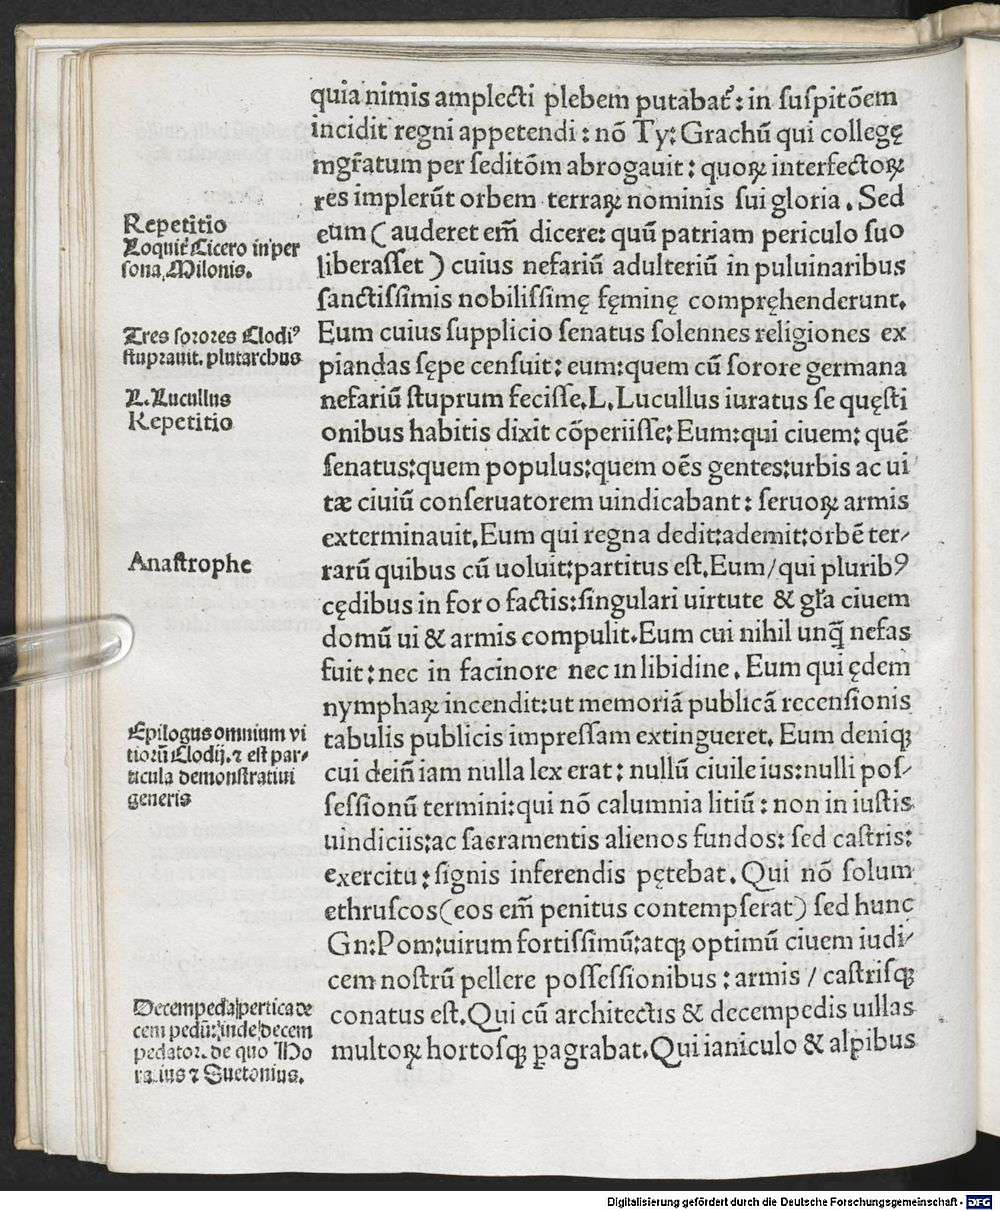 quia nimis amplecti plebem putabat᷑: in ſuſpitōem
incidit regni appetendi: nō Ty: Grachū qui collegę
mgr̄atum per ſeditōm abrogauit: quoꝝ interfectoꝝ
res implerūt orbem terraꝝ nominis ſui gloria. Sed
eum (auderet em̄ dicere: quū patriam periculo ſuo
liberaſſet) cuius nefariū adulteriū in puluinaribus
ſanctiſſimis nobiliſſimę fęminę compręhenderunt.
Eum cuius ſupplicio ſenatus ſolennes religiones ex
piandas ſępe cenſuit: eum: quem cū ſorore germana
nefariū ſtuprum feciſſe. L. Lucullus iuratus ſe quęſti
onibus habitis dixit cōperiiſſe: Eum: qui ciuem: quē
ſenatus: quem populus: quem oēs gentes: urbis ac ui
tæ ciuiū conſeruatorem uindicabant: ſeruoꝝ armis
exterminauit. Eum qui regna dedit: ademit: orbē ter⸗
rarū quibus cū uoluit: partitus eſt. Eum/ qui pluribꝰ
cędibus in foro factis: ſingulari uirtute & gl̄a ciuem
domū ui & armis compulit. Eum cui nihil unq̄ nefas
fuit: nec in facinore nec in libidine. Eum qui ędem
nymphaꝝ incendit: ut memoriā publicā recenſionis
tabulis publicis impreſſam extingueret. Eum deniqꝫ
cui dein̄ iam nulla lex erat: nullū ciuile ius: nulli poſ⸗
ſeſſionū termini: qui nō calumnia litiū: non in iuſtis
uindiciis: ac ſacramentis alienos fundos: ſed caſtris:
exercitu: ſignis inferendis pętebat. Qui nō ſolum
ethruſcos (eos em̄ penitus contempſerat) ſed hunc
Gn: Pom: uirum fortiſſimū: atqꝫ optimū ciuem iudi⸗
cem noſtrū pellere poſſeſſionibus: armis / caſtriſqꝫ
conatus eſt. Qui cū architectis & decempedis uillas
multoꝝ hortoſqꝫ ꝑagrabat. Qui ianiculo & alpibus
Repetitio
Loquit᷑ Cicero in per
ſona Milonis.
Tres ſorores Clodiꝰ
ſtuprauit. plutarchus
L. Lucullus
Repetitio
Anaſtrophe
Epilogus omnium vi
tiorū Clodij. ⁊ eſt par⸗
ticula demonſtratiui
generis
Decempeda pertica de
cem pedū: inde decem
pedator. de quo Ho
ratius ⁊ Suetonius.
Digitalisierung gefördert durch die Deutsche Forschungsgemeinschaft - DFG